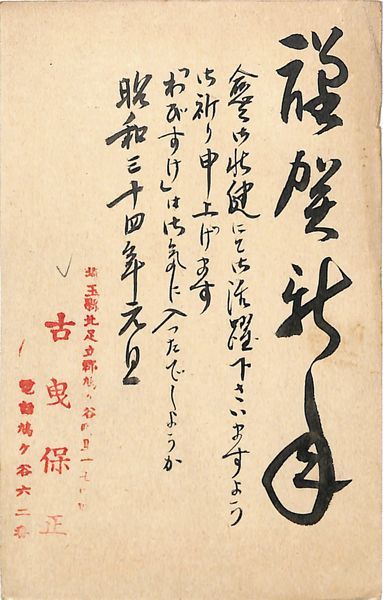 謹賀新年
益々御壮健にて御活躍下さいますよう
御祈り申上げます
「わびすけ」は御気に入ったでしょうか
昭和三十四年元旦
埼玉縣北足立郡鳩ヶ谷町
古曳保正
電話鳩ヶ谷六二番